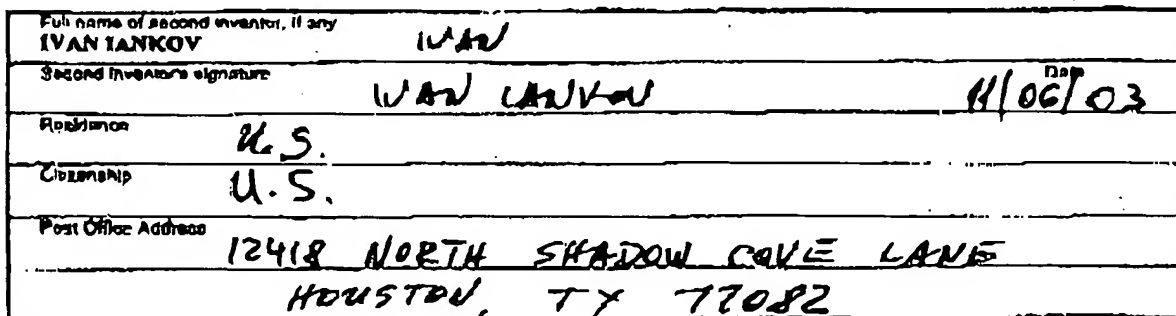 Full name of second inventor, if any
IVAN IANKOV IVAN
Second Inventor's signature IVAN IANKOV Date 11/06/03
Residence U.S.
Citizenship U.S.
Post Office Address 12418 NORTH SHADOW COVE LANE
HOUSTON, TX 77082